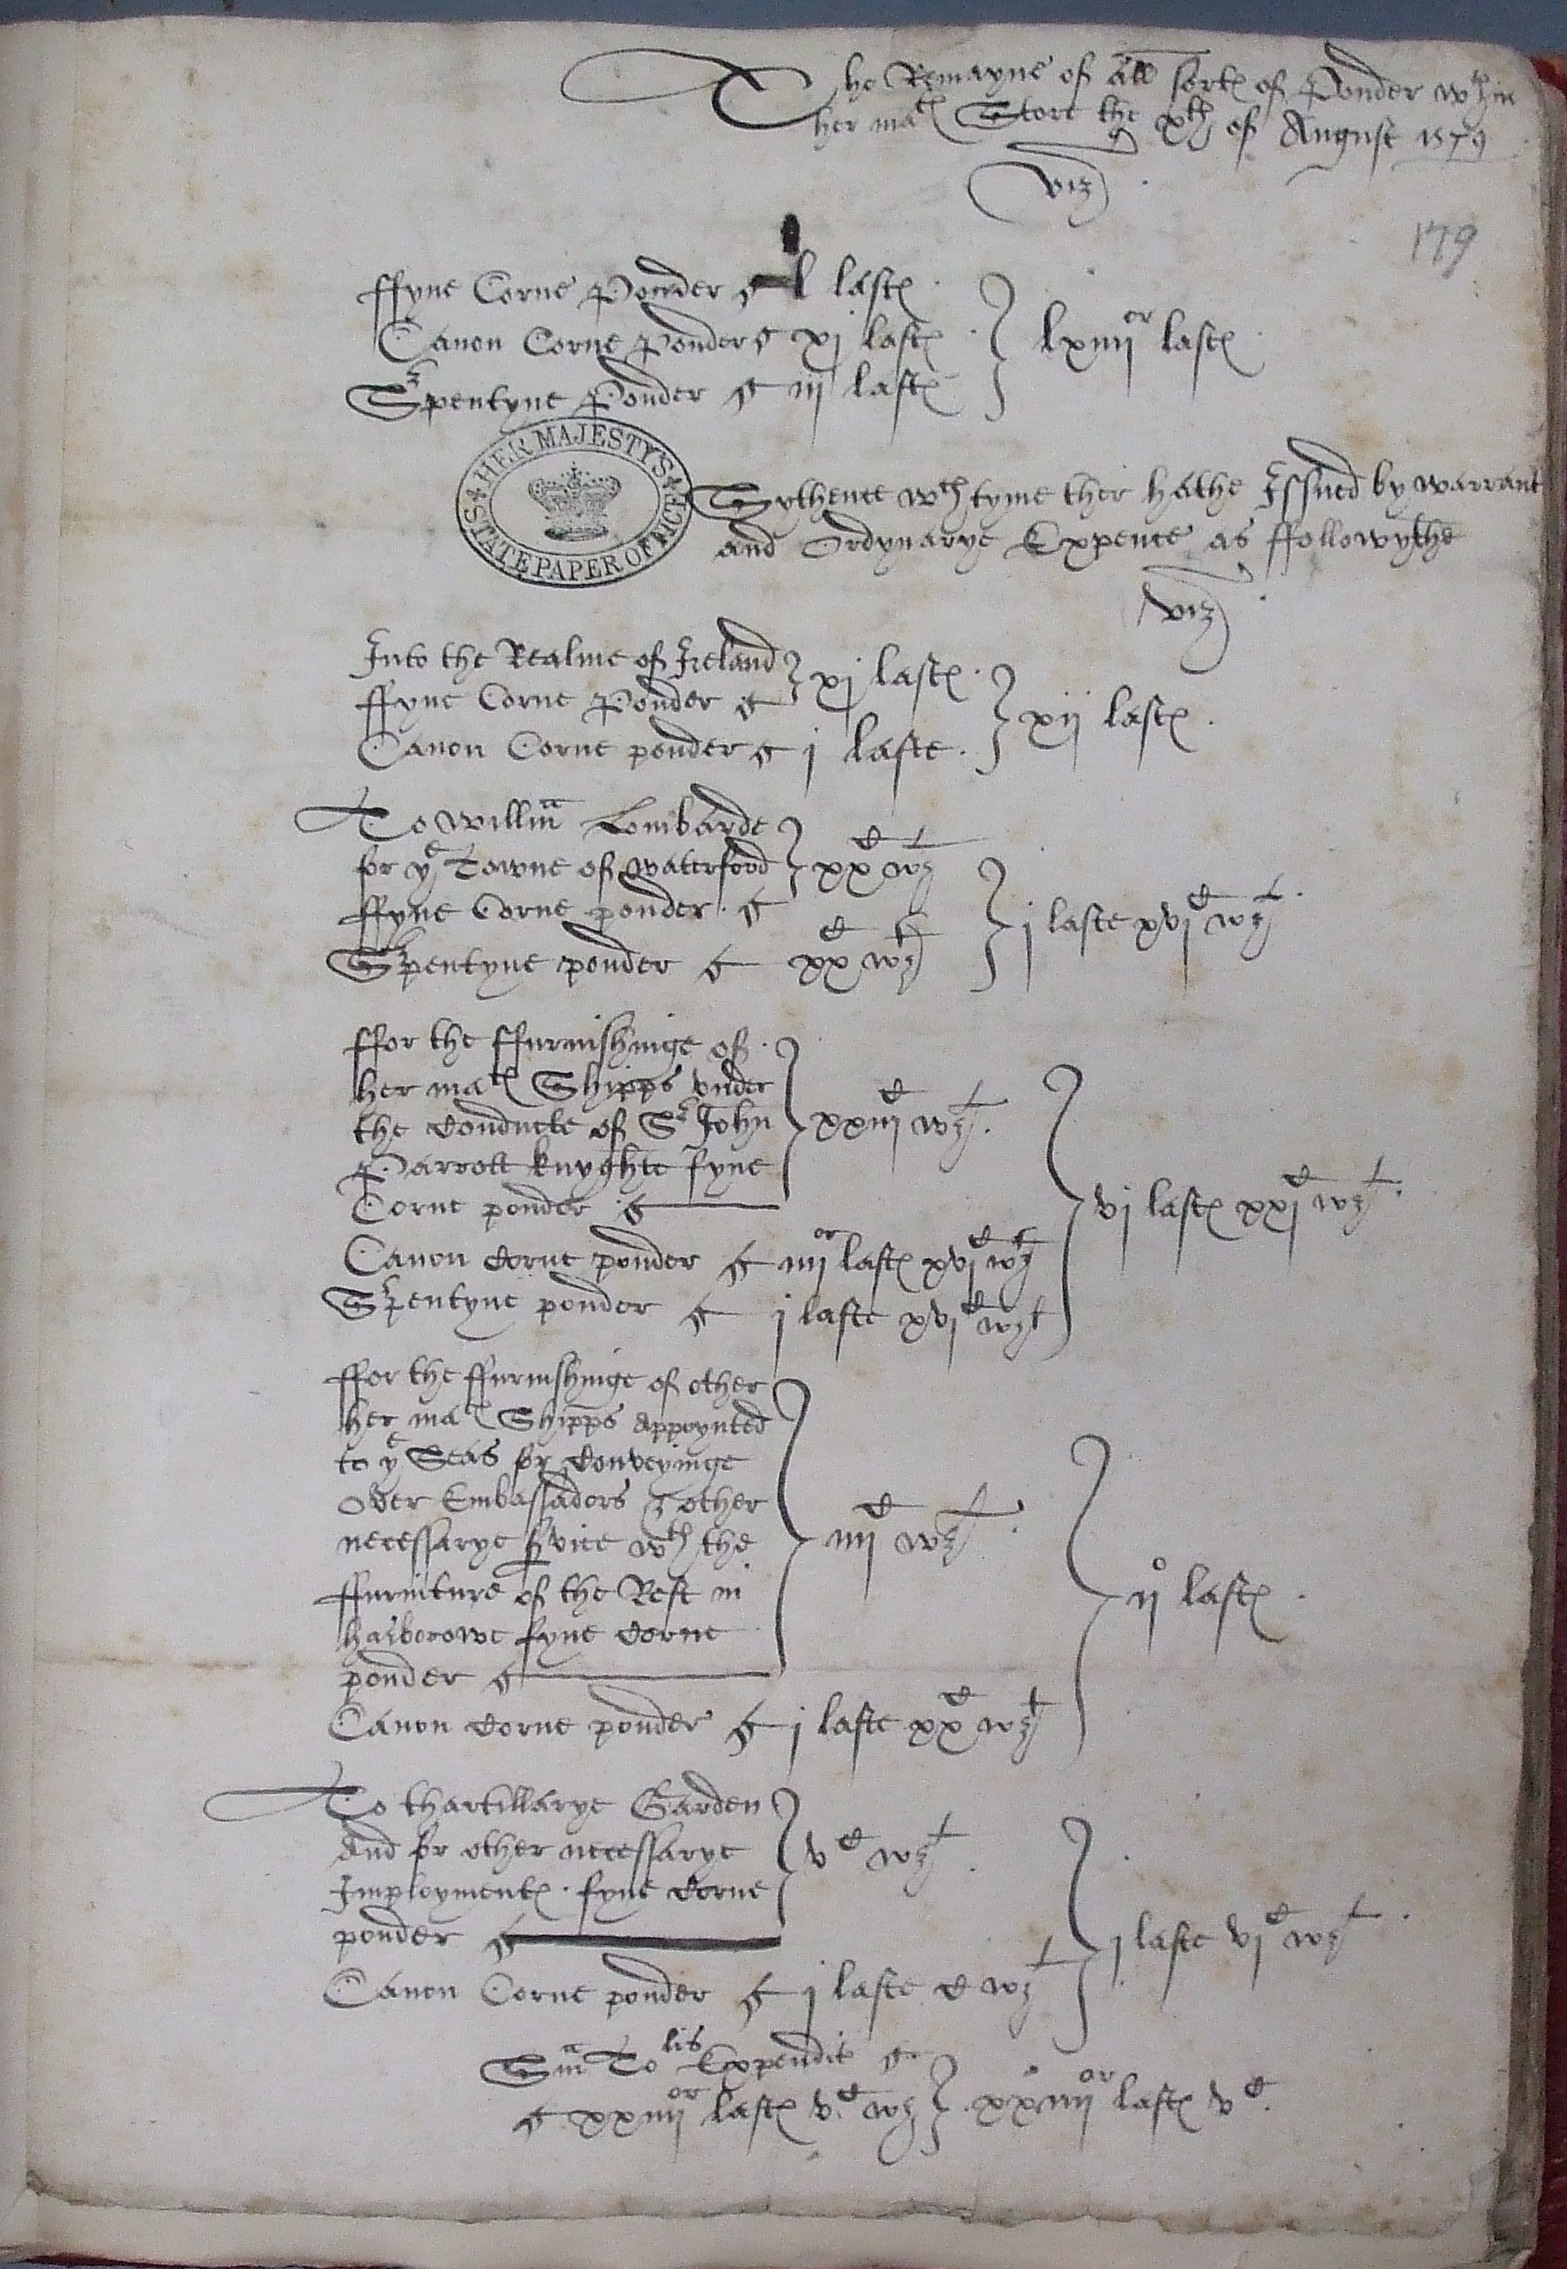 The Remayne of all sortes of Powder wthin
her mates Store the xth of August 1579
viz
179
ffyne Corne Powder l lastes
Canon Corne Powder xj lastes
Srpentyne Powder iij lastes
lxiiijor lastes
HER MAJESTY'S
STATE PAPER OFFICE
Sythence wch tyme ther hathe Issued by warrant
and Ordynarye Expence as ffollowythe
viz
Into the Realme of Ireland
ffyne Corne Powder
xj lastes
Canon Corne powder j laste
xij lastes
To Willm Lombarde
for ye Towne of waterford
ffyne Corne powder
xxC wt
Srpentyne powder xxC wt
j laste xviC wt
ffor the ffurnishinge of
her mates Shipps vnder
the Conducte of Sr John
Parrott knyghte fyne
Corne powder
xxiijC wt
Canon Corne powder iiijor lastes xviC wt
Srpentyne powder j laste xviC wt
vj lastes xxjC wt
ffor the ffurnishinge of other
her mates Shipps appoynted
to ye Seas for Conveyinge
Over Embassadors & other
necessarye srvice wth the
ffurniture of the Rest in
harborowe fyne Corne
powder
iiijC wt
Canon Corne powder j laste xxC wt
ijo lastes
To thartillarye Garden
And for other necessarye
Imploymentes fyne Corne
powder
vC wt
Canon Corne powder j laste C wt
j laste vjC wt
Sma Tolis Expendit
xxiiijor lastes vC wt
xxiiijor lastes vC